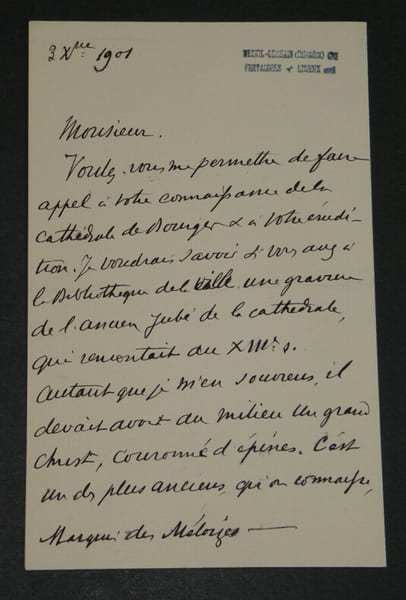 3 Xbre 1901
MESNIL-GERMAIN (CALVADOS)
FERVACQUES LISIEUX
Monsieur.
Voulez-vous me permettre de faire
appel à votre connaissance de la
cathédrale de Bourges & à votre érudi-
tion. Je voudrais savoir si vous avez à
la Bibliothèque de la Ville une gravure
de l'ancien Jubé de la cathédrale,
qui remontait au XIIIe s.
autant que je m'en souviens, il
devait avoir au milieu un grand
Christ, couronné d'épines. C'est
un des plus anciens, qu'on connaisse,
Marquis des Méloizes —